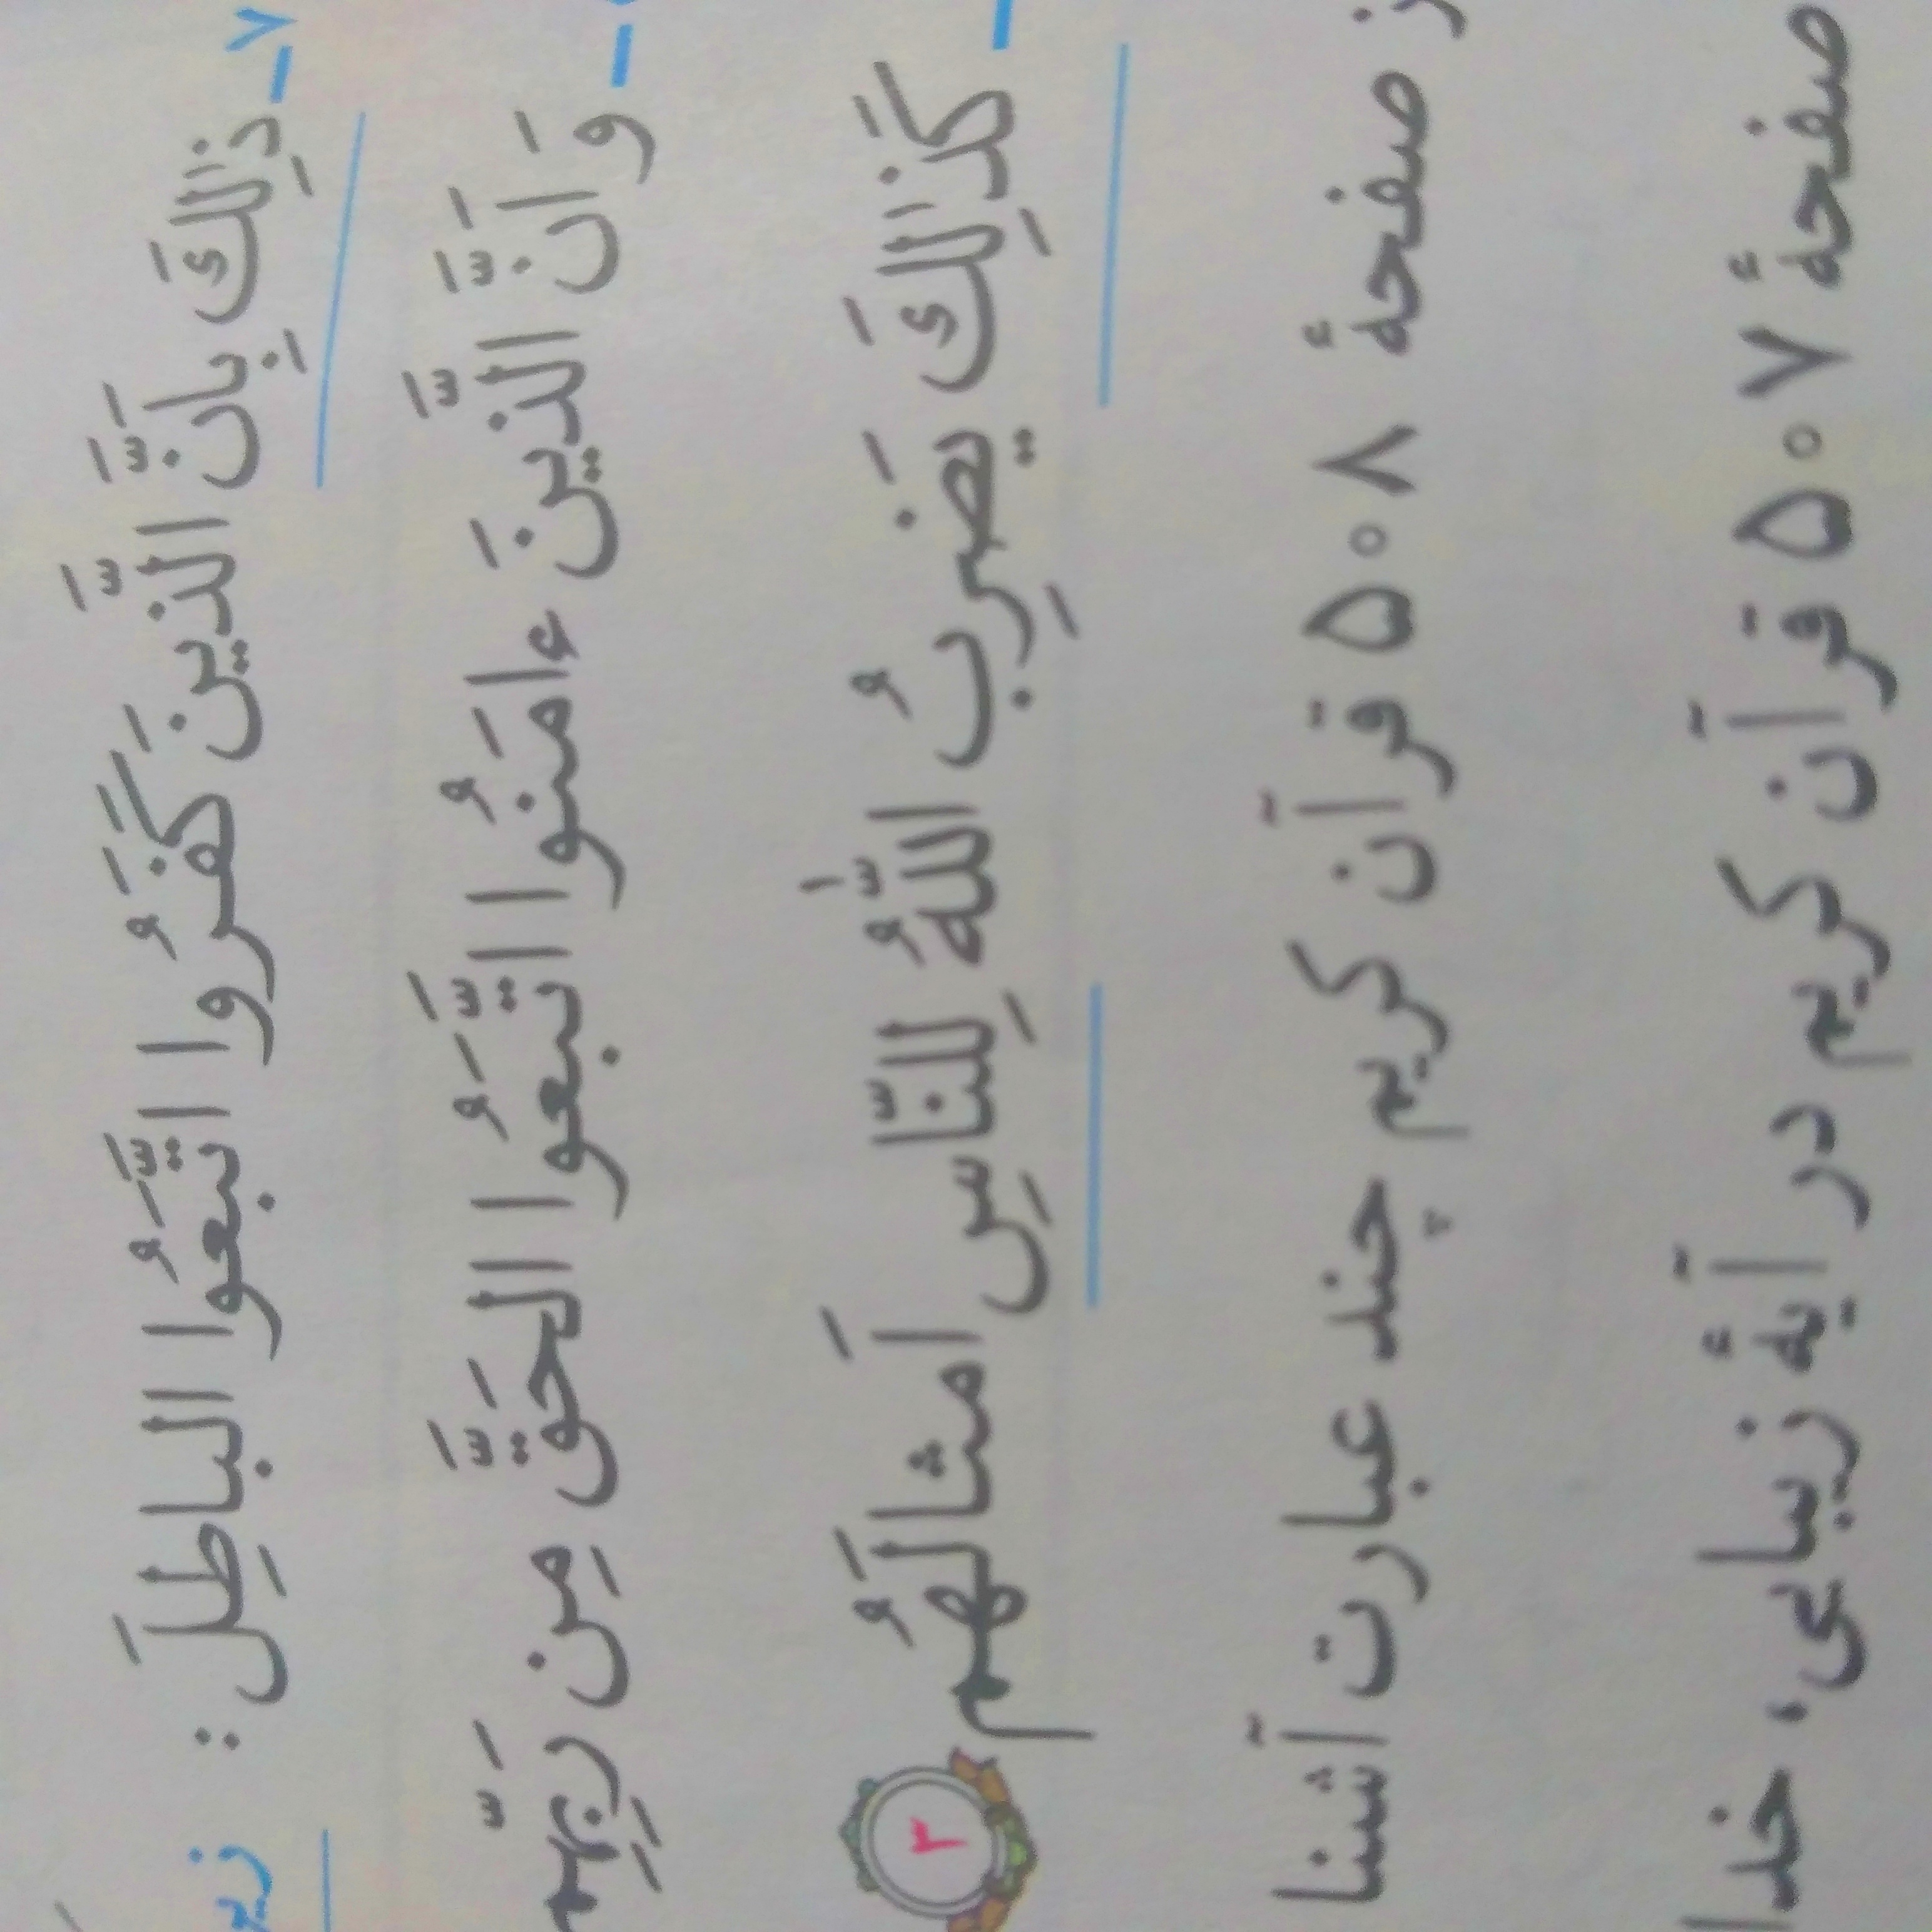 ۷ــ ذٰلِكَ بِاَنَّ الَّذینَ كَفَرُوا اتَّبَعُوا الباطِلَ :
ــ وَ اَنَّ الَّذینَ ءامَنُوا اتَّبَعُوا الحَقَّ مِن رَبِّهِم
ــ كَذٰلِكَ یَضرِبُ اللّٰهُ لِلنّاسِ اَمثالَهُم ۳
صفحهٔ ۵۰۸ قرآن کریم چند عبارت آشنا
صفحهٔ ۵۰۷ قرآن کریم در آیهٔ زیبایی، خدا